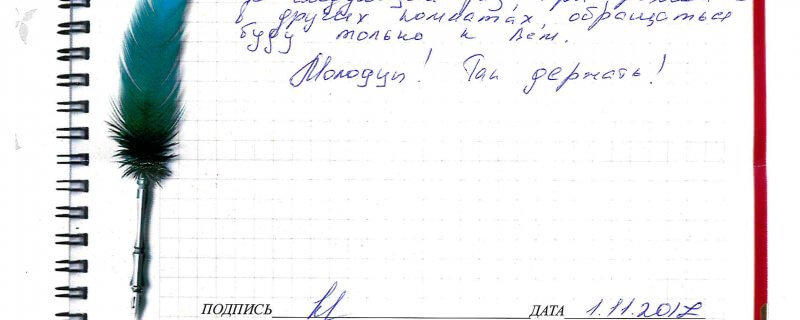 в других комнатах, обращаться
буду только к Вам.
Молодцы! Так держать!
ПОДПИСЬ ДАТА 1.11.2017